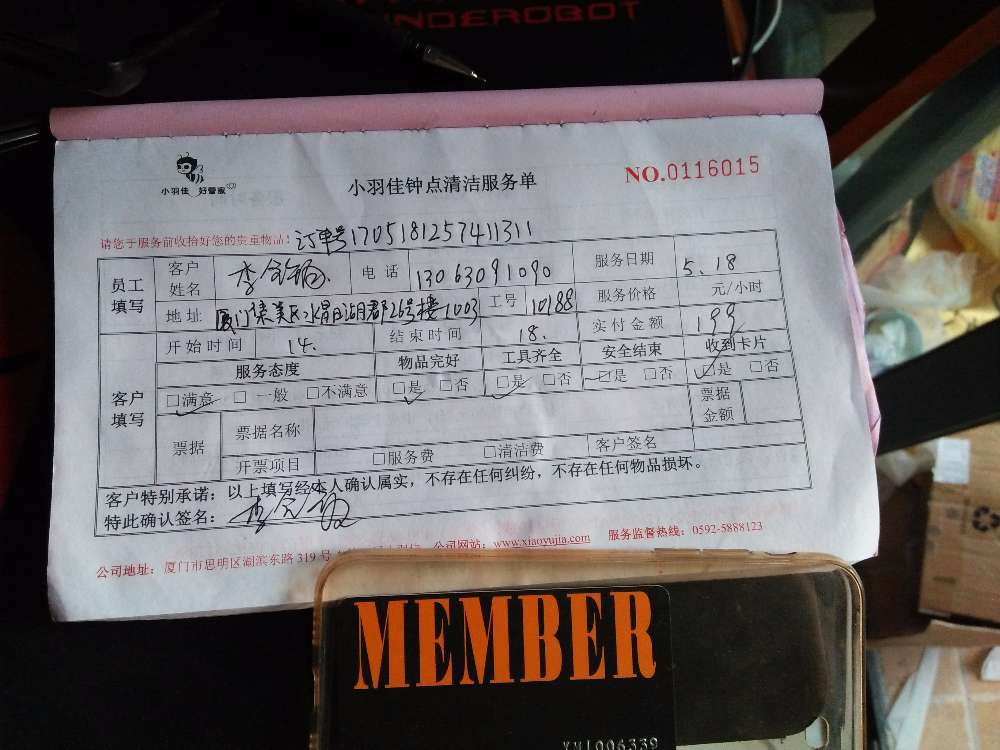 NDEROBOT
小羽佳 好管家
小羽佳钟点清洁服务单
NO.0116015
请您于服务前收拾好您的贵重物品:订单号17051812574113​11
员工填写 客户姓名 李 电话 13063091090 服务日期 5.18
地址 厦门集美区水晶湖郡26号楼1003 工号 10188 服务价格 元/小时
开始时间 14. 结束时间 18. 实付金额 199
客户填写 服务态度 物品完好 工具齐全 安全结束 收到卡片
□满意 □一般 □不满意 □是 □否 □是 □否 □是 □否 □是 □否
票据 票据名称 票据金额
开票项目 □服务费 □清洁费 客户签名
客户特别承诺:以上填写经本人确认属实,不存在任何纠纷,不存在任何物品损坏。
特此确认签名: 李
公司地址:厦门市思明区湖滨东路319号 公司网站:www.xiaoyujia.com 服务监督热线:0592-5888123
MEMBER
XM1006339